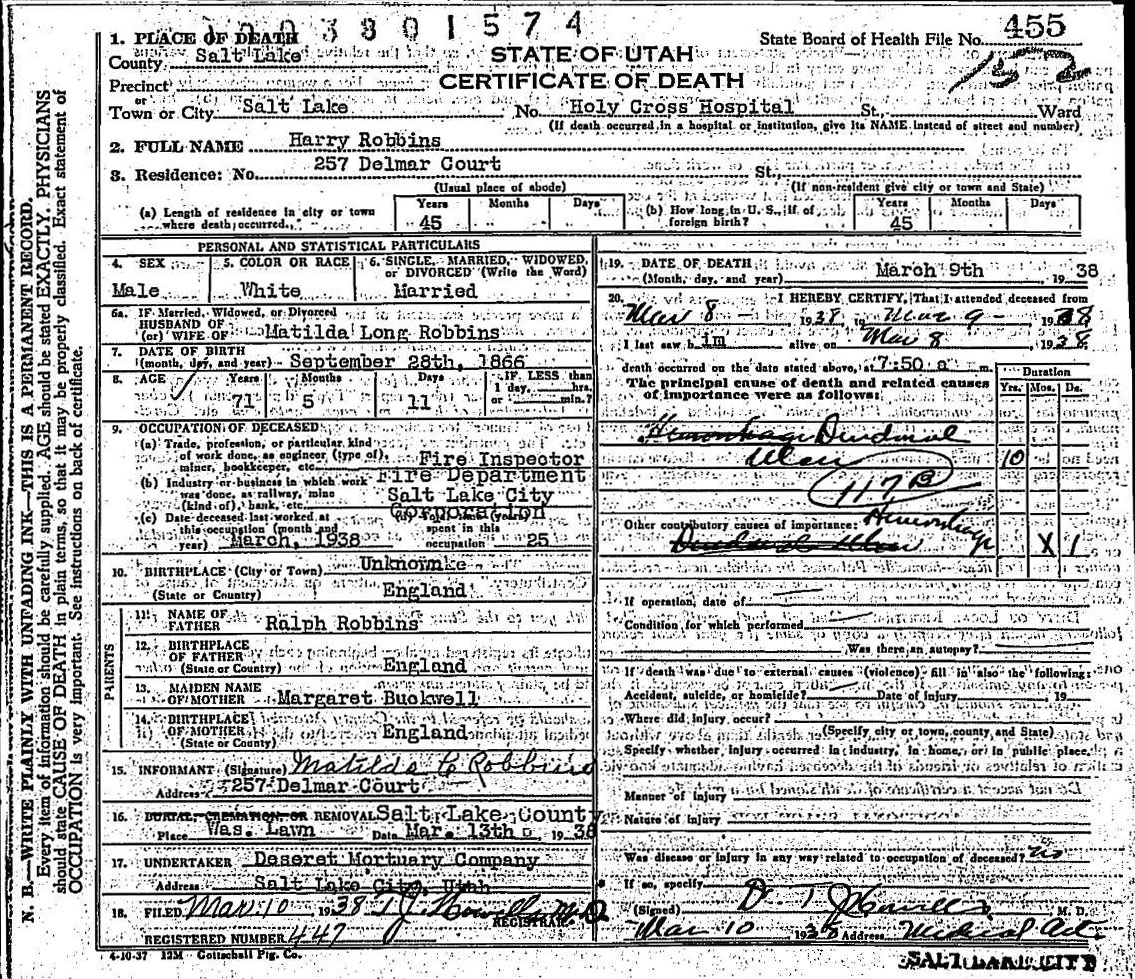 003801574
1. PLACE OF DEATH
County Salt Lake
STATE OF UTAH
CERTIFICATE OF DEATH
State Board of Health File No. 455
152
Precinct
or
Town or City Salt Lake No. Holy Cross Hospital St., Ward
(If death occurred in a hospital or institution, give its NAME instead of street and number)
2. FULL NAME Harry Robbins
3. Residence: No. 257 Delmar Court St.,
(Usual place of abode) (If non-resident give city or town and State)
(a) Length of residence in city or town where death occurred., Years 45 Months Days
(b) How long in U. S., if of foreign birth? Years 45 Months Days
PERSONAL AND STATISTICAL PARTICULARS
4. SEX Male
5. COLOR OR RACE White
6. SINGLE, MARRIED, WIDOWED, or DIVORCED (Write the Word) Married
6a. IF Married, Widowed, or Divorced
HUSBAND OF
(or) WIFE OF Matilda Long Robbins
7. DATE OF BIRTH
(month, day, and year) September 28th, 1866
8. AGE Years 71 Months 5 Days 11 IF LESS than 1 day, hrs. or min.?
9. OCCUPATION OF DECEASED
(a) Trade, profession, or particular kind
of work done, as engineer (type of),
miner, bookkeeper, etc. Fire Inspector
(b) Industry or business in which work
was done, as railway, mine
(kind of), bank, etc. Fire Department
Salt Lake City
Corporation
(c) Date deceased last worked at
this occupation (month and
year) March, 1938
spent in this
occupation 25
10. BIRTHPLACE (City or Town)
(State or Country) England
PARENTS
11. NAME OF
FATHER Ralph Robbins
12. BIRTHPLACE
OF FATHER
(State or Country) England
13. MAIDEN NAME
OF MOTHER Margaret Buckwell
14. BIRTHPLACE
OF MOTHER
(State or County) England
15. INFORMANT (Signature) Matilda C Robbins
Address 257 Delmar Court
16. BURIAL, CREMATION, OR REMOVAL Salt Lake County
Place Was. Lawn Date Mar. 13th 1938
17. UNDERTAKER Deseret Mortuary Company
Address Salt Lake City, Utah
18. FILED Mar 10 1938 T J Howells M.D
REGISTRAR.
REGISTERED NUMBER 447
4-10-37 12M Gottschall Ptg. Co.
19. DATE OF DEATH
(Month, day, and year) March 9th 1938
20. I HEREBY CERTIFY, That I attended deceased from
Mar 8 1938 to Mar 9 1938
I last saw him alive on Mar 8, 1938
death occurred on the date stated above, at 7:50 a m.
The principal cause of death and related causes
of importance were as follows:
Duration
Yrs. Mos. Ds.
Hemorrhage Duodenal
Ulcer 10
117 B
Other contributory causes of importance: Hemorrhage
Duodenal Ulcer X 1
If operation, date of
Condition for which performed
Was there an autopsy?
If death was due to external causes (violence) fill in also the following:
Accident, suicide, or homicide? Date of injury 19
Where did injury occur?
(Specify city or town, county, and State)
Specify whether injury occurred in industry, in home, or in public place.
Manner of injury
Nature of injury
Was disease or injury in any way related to occupation of deceased? no
If so, specify
(Signed) D. T J Howells M. D.
Mar 10 1938 Address Medical Arts
SALT LAKE CITY
N. B.—WRITE PLAINLY WITH UNFADING INK—THIS IS A PERMANENT RECORD.
Every item of information should be carefully supplied. AGE should be stated EXACTLY. PHYSICIANS
should state CAUSE OF DEATH in plain terms, so that it may be properly classified. Exact statement of
OCCUPATION is very important. See instructions on back of certificate.